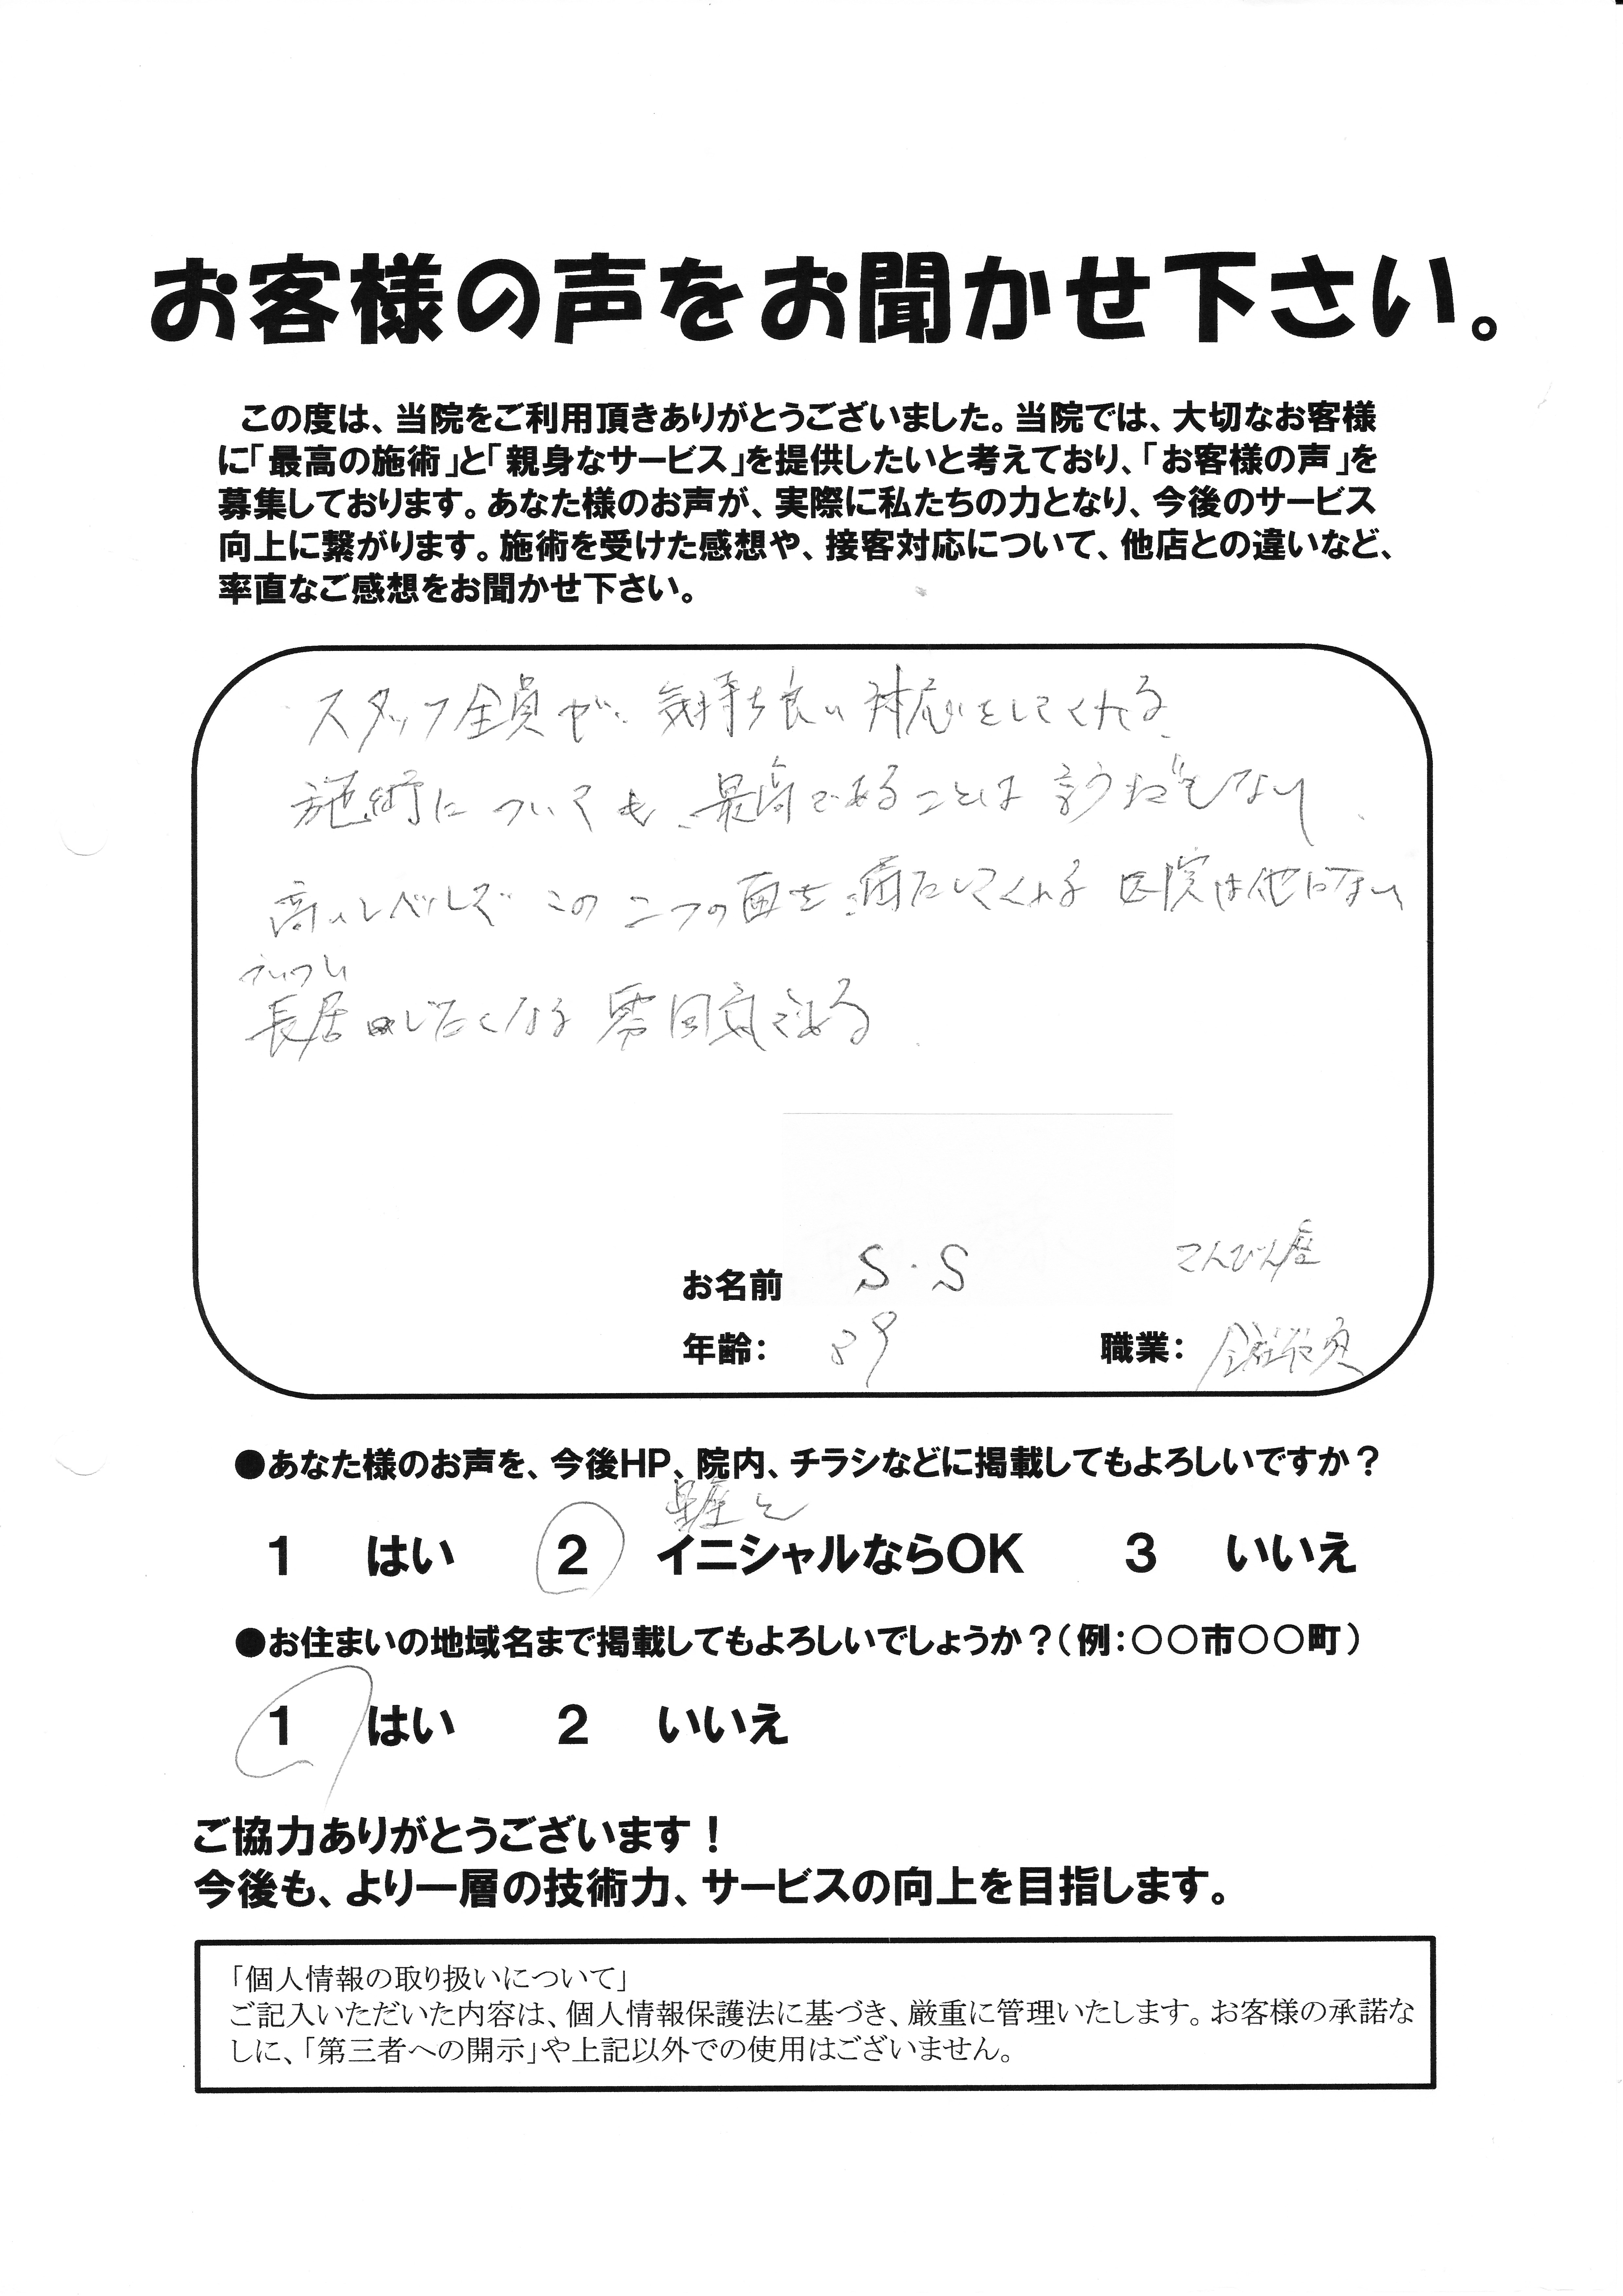 お客様の声をお聞かせ下さい。
この度は、当院をご利用頂きありがとうございました。当院では、大切なお客様
に「最高の施術」と「親身なサービス」を提供したいと考えており、「お客様の声」を
募集しております。あなた様のお声が、実際に私たちの力となり、今後のサービス
向上に繋がります。施術を受けた感想や、接客対応について、他店との違いなど、
率直なご感想をお聞かせ下さい。
スタッフ全員が、気持ち良い対応をしてくれる
施術についても、最高であることは言うまでもない
高いレベルで この二つの面を満たしてくれる 医院は他にない
長居したくなる 雰囲気である
お名前 S.S てんびん座
年齢: 89 職業: 会社役員
●あなた様のお声を、今後HP、院内、チラシなどに掲載してもよろしいですか?
星座と
1 はい 2 イニシャルならOK 3 いいえ
●お住まいの地域名まで掲載してもよろしいでしょうか?(例:○○市○○町)
1 はい 2 いいえ
ご協力ありがとうございます!
今後も、より一層の技術力、サービスの向上を目指します。
「個人情報の取り扱いについて」
ご記入いただいた内容は、個人情報保護法に基づき、厳重に管理いたします。お客様の承諾な
しに、「第三者への開示」や上記以外での使用はございません。